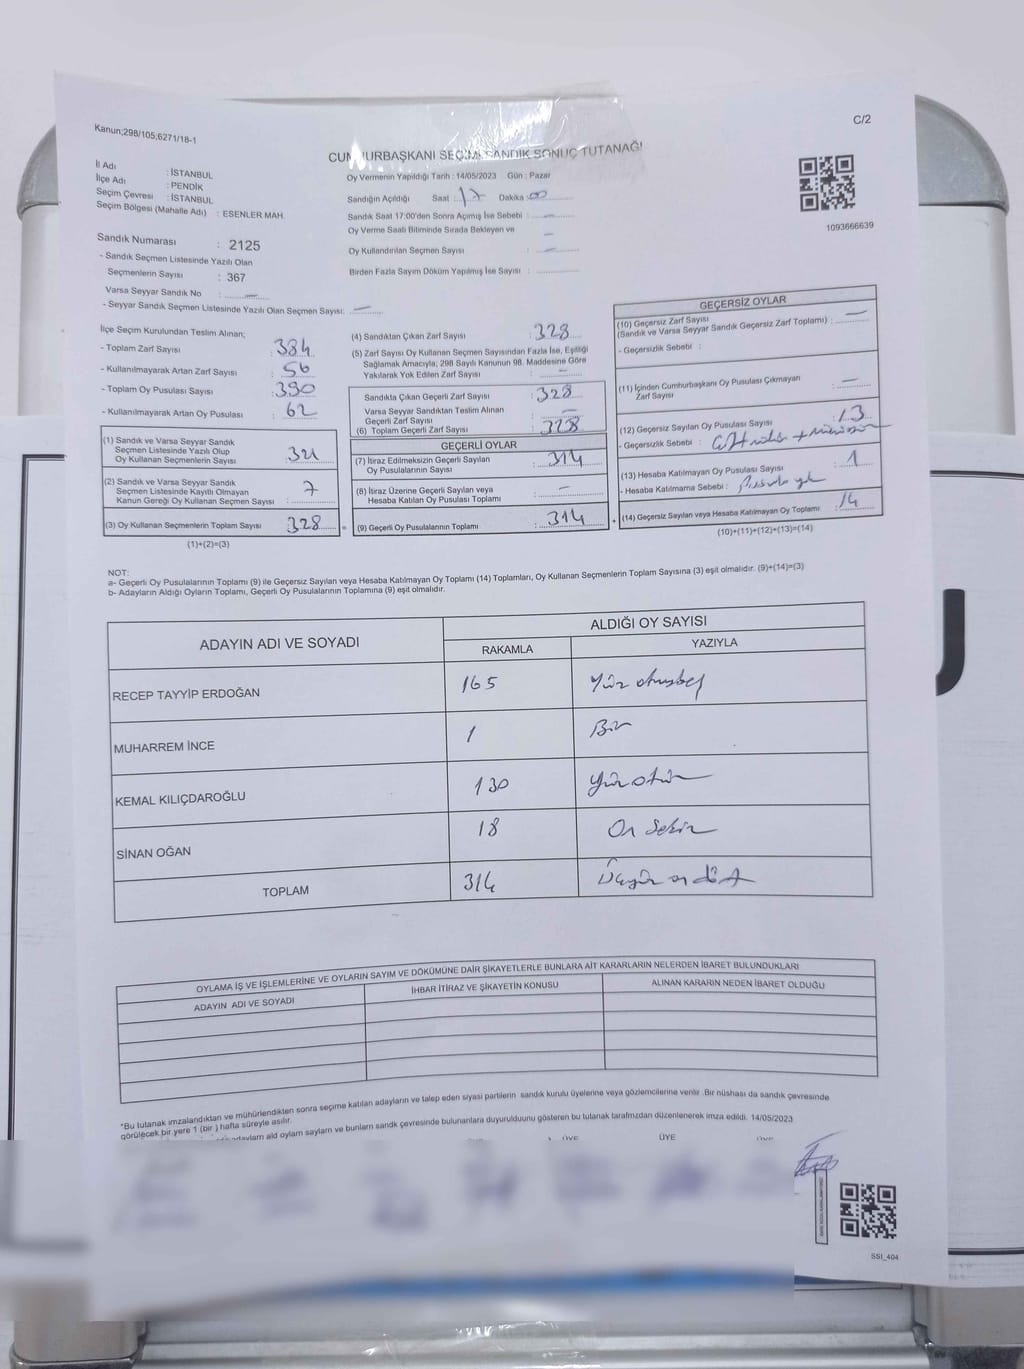 Kanun;298/105;6271/18-1
C/2
CUMHURBAŞKANI SEÇİMİ SANDIK SONUÇ TUTANAĞI
İl Adı : İSTANBUL
İlçe Adı : PENDİK
Seçim Çevresi : İSTANBUL
Seçim Bölgesi (Mahalle Adı) : ESENLER MAH.
Oy Vermenin Yapıldığı Tarih : 14/05/2023 Gün : Pazar
Sandığın Açıldığı Saat : 17 Dakika : 00
Sandık Saat 17:00'den Sonra Açımış İse Sebebi : —
Oy Verme Saati Bitiminde Sırada Bekleyen ve —
Oy Kullandırılan Seçmen Sayısı : —
Birden Fazla Sayım Döküm Yapılmış İse Sayısı :
1093666639
Sandık Numarası : 2125
- Sandık Seçmen Listesinde Yazılı Olan
Seçmenlerin Sayısı : 367
Varsa Seyyar Sandık No : —
- Seyyar Sandık Seçmen Listesinde Yazılı Olan Seçmen Sayısı: —
İlçe Seçim Kurulundan Teslim Alınan;
- Toplam Zarf Sayısı : 384
- Kullanılmayarak Artan Zarf Sayısı : 56
- Toplam Oy Pusulası Sayısı : 390
- Kullanılmayarak Artan Oy Pusulası : 62
(1) Sandık ve Varsa Seyyar Sandık
Seçmen Listesinde Yazılı Olup
Oy Kullanan Seçmenlerin Sayısı : 321
(2) Sandık ve Varsa Seyyar Sandık
Seçmen Listesinde Kayıtlı Olmayan
Kanun Gereği Oy Kullanan Seçmen Sayısı : 7
(3) Oy Kullanan Seçmenlerin Toplam Sayısı : 328
(1)+(2)=(3)
(4) Sandıktan Çıkan Zarf Sayısı : 328
(5) Zarf Sayısı Oy Kullanan Seçmen Sayısından Fazla İse, Eşitliği
Sağlamak Amacıyla; 298 Sayılı Kanunun 98. Maddesine Göre
Yakılarak Yok Edilen Zarf Sayısı : —
Sandıkta Çıkan Geçerli Zarf Sayısı : 328
Varsa Seyyar Sandıktan Teslim Alınan
Geçerli Zarf Sayısı : —
(6) Toplam Geçerli Zarf Sayısı : 328
GEÇERLİ OYLAR
(7) İtiraz Edilmeksizin Geçerli Sayılan
Oy Pusulalarının Sayısı : 314
(8) İtiraz Üzerine Geçerli Sayılan veya
Hesaba Katılan Oy Pusulası Toplamı : —
(9) Geçerli Oy Pusulalarının Toplamı : 314
GEÇERSİZ OYLAR
(10) Geçersiz Zarf Sayısı
(Sandık ve Varsa Seyyar Sandık Geçersiz Zarf Toplamı) : —
- Geçersizlik Sebebi :
(11) İçinden Cumhurbaşkanı Oy Pusulası Çıkmayan
Zarf Sayısı : —
(12) Geçersiz Sayılan Oy Pusulası Sayısı : 13
- Geçersizlik Sebebi :
(13) Hesaba Katılmayan Oy Pusulası Sayısı : 1
- Hesaba Katılmama Sebebi :
(14) Geçersiz Sayılan veya Hesaba Katılmayan Oy Toplamı : 14
(10)+(11)+(12)+(13)=(14)
NOT:
a- Geçerli Oy Pusulalarının Toplamı (9) ile Geçersiz Sayılan veya Hesaba Katılmayan Oy Toplamı (14) Toplamları, Oy Kullanan Seçmenlerin Toplam Sayısına (3) eşit olmalıdır. (9)+(14)=(3)
b- Adayların Aldığı Oyların Toplamı, Geçerli Oy Pusulalarının Toplamına (9) eşit olmalıdır.
ADAYIN ADI VE SOYADI
ALDIĞI OY SAYISI
RAKAMLA YAZIYLA
RECEP TAYYİP ERDOĞAN 165 Yüz atmışbeş
MUHARREM İNCE 1 Bir
KEMAL KILIÇDAROĞLU 130 Yüzotuz
SİNAN OĞAN 18 On Sekiz
TOPLAM 314 Üçyüz on dört
OYLAMA İŞ VE İŞLEMLERİNE VE OYLARIN SAYIM VE DÖKÜMÜNE DAİR ŞİKAYETLERLE BUNLARA AİT KARARLARIN NELERDEN İBARET BULUNDUKLARI
ADAYIN ADI VE SOYADI İHBAR İTİRAZ VE ŞİKAYETİN KONUSU ALINAN KARARIN NEDEN İBARET OLDUĞU
*Bu tutanak imzalandıktan ve mühürlendikten sonra seçime katılan adayların ve talep eden siyasi partilerin sandık kurulu üyelerine veya gözlemcilerine verilir. Bir nüshası da sandık çevresinde
görülecek bir yere 1 (bir ) hafta süreyle asılır.
adayların ald oylam sayları ve bunların sandk çevresinde bulunanlara duyurulduunu gösteren bu tutanak tarafmzdan düzenlenerek imza edildi. 14/05/2023
ÜYE ÜYE ÜYE
SSI_404